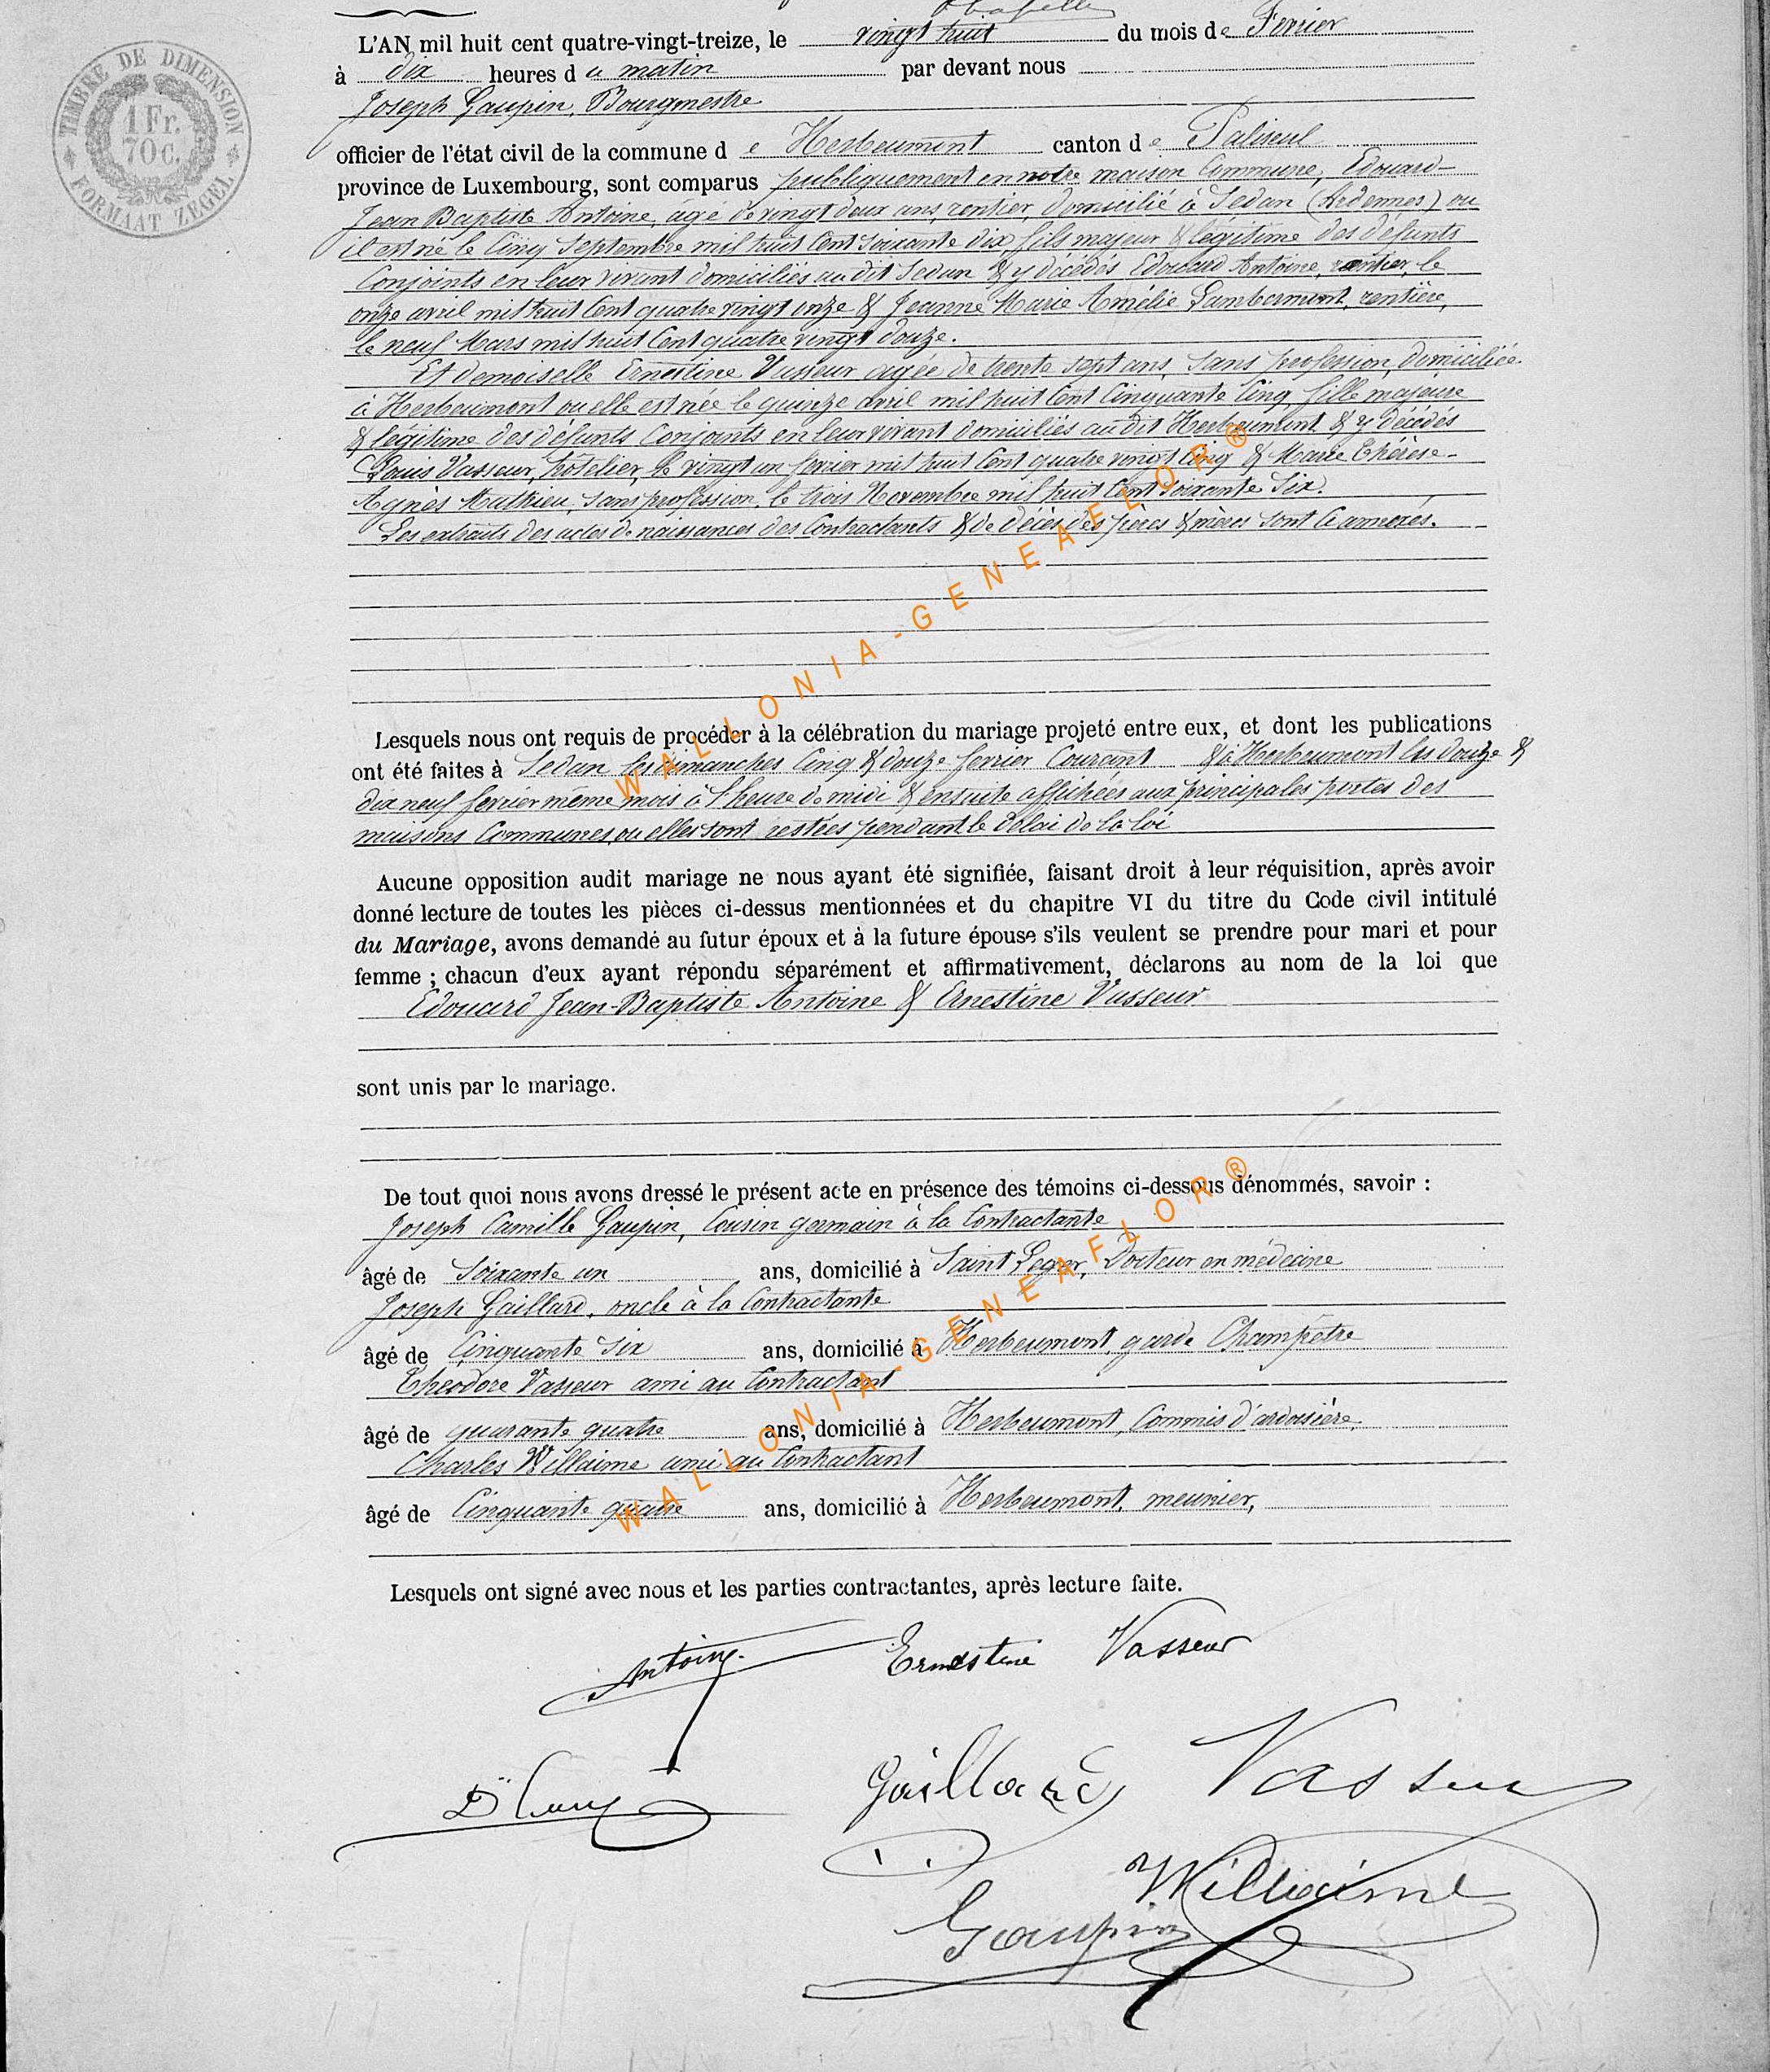 L'AN mil huit cent quatre-vingt-treize, le vingt huit du mois de Fevrier
à dix heures du matin par devant nous
Joseph Gaupin, Bourgmestre
officier de l'état civil de la commune de Herbeumont canton de Paliseul
province de Luxembourg, sont comparus publiquement en notre maison Commune, Edouard-
Jean Baptiste Antoine, âgé de vingt deux ans, rentier, domicilié à Sedan (Ardennes) ou
il est né le Cinq Septembre mil huit Cent soixante dix, fils majeur & légitime des défunts
Conjoints en leur vivant domiciliés au dit Sedan & y décédés Edouard Antoine, rentier, le
onze avril mil huit Cent quatre vingt onze & Jeanne Marie Amélie Lambermont, rentière,
le neuf Mars mil huit Cent quatre vingt douze.
Et demoiselle Ernestine Vasseur agée de trente sept ans, sans profession, domiciliée
à Herbeumont ou elle est née le quinze avril mil huit Cent Cinquante Cinq, fille majeure
& légitime des défunts Conjoints en leur vivant domiciliés au dit Herbeumont & y décédés
Louis Vasseur, hôtelier, le vingt un fevrier mil huit Cent quatre vingt Cinq & Marie Thérèse-
Agnès Mathieu, sans profession, le trois Novembre mil huit Cent soixante Six.
Les extraits des actes de naissances des Contractants & de décès des pères & mères sont Ci annexés.
Lesquels nous ont requis de procéder à la célébration du mariage projeté entre eux, et dont les publications
ont été faites à Sedan les dimanches Cinq & douze fevrier Courant & à Herbeumont les douze &
dix neuf fevrier même mois à l'heure de midi & ensuite affichées aux principales portes des
maisons Communes, ou elles sont restées pendant le délai de la loi
Aucune opposition audit mariage ne nous ayant été signifiée, faisant droit à leur réquisition, après avoir
donné lecture de toutes les pièces ci-dessus mentionnées et du chapitre VI du titre du Code civil intitulé
du Mariage, avons demandé au futur époux et à la future épouse s'ils veulent se prendre pour mari et pour
femme ; chacun d'eux ayant répondu séparément et affirmativement, déclarons au nom de la loi que
Edouard Jean-Baptiste Antoine & Ernestine Vasseur
sont unis par le mariage.
De tout quoi nous avons dressé le présent acte en présence des témoins ci-dessous dénommés, savoir :
Joseph Camille Gaupin, Cousin germain à la Contractante
âgé de Soixante un ans, domicilié à Saint Leger, Docteur en médecine
Joseph Gaillard, oncle à la Contractante
âgé de Cinquante Six ans, domicilié à Herbeumont, garde Champêtre
Theodore Vasseur ami au Contractant
âgé de quarante quatre ans, domicilié à Herbeumont, Commis d'ardoisière,
Charles Willaime ami au Contractant
âgé de Cinquante quatre ans, domicilié à Herbeumont, meunier,
Lesquels ont signé avec nous et les parties contractantes, après lecture faite.
Antoine
Ernestine Vasseur
Gaillard Vasseur
Willaime
Gaupin
TIMBRE DE DIMENSION
1 Fr.
70 C.
FORMAAT ZEGEL
WALLONIA-GENEAFLOR®
WALLONIA-GENEAFLOR®